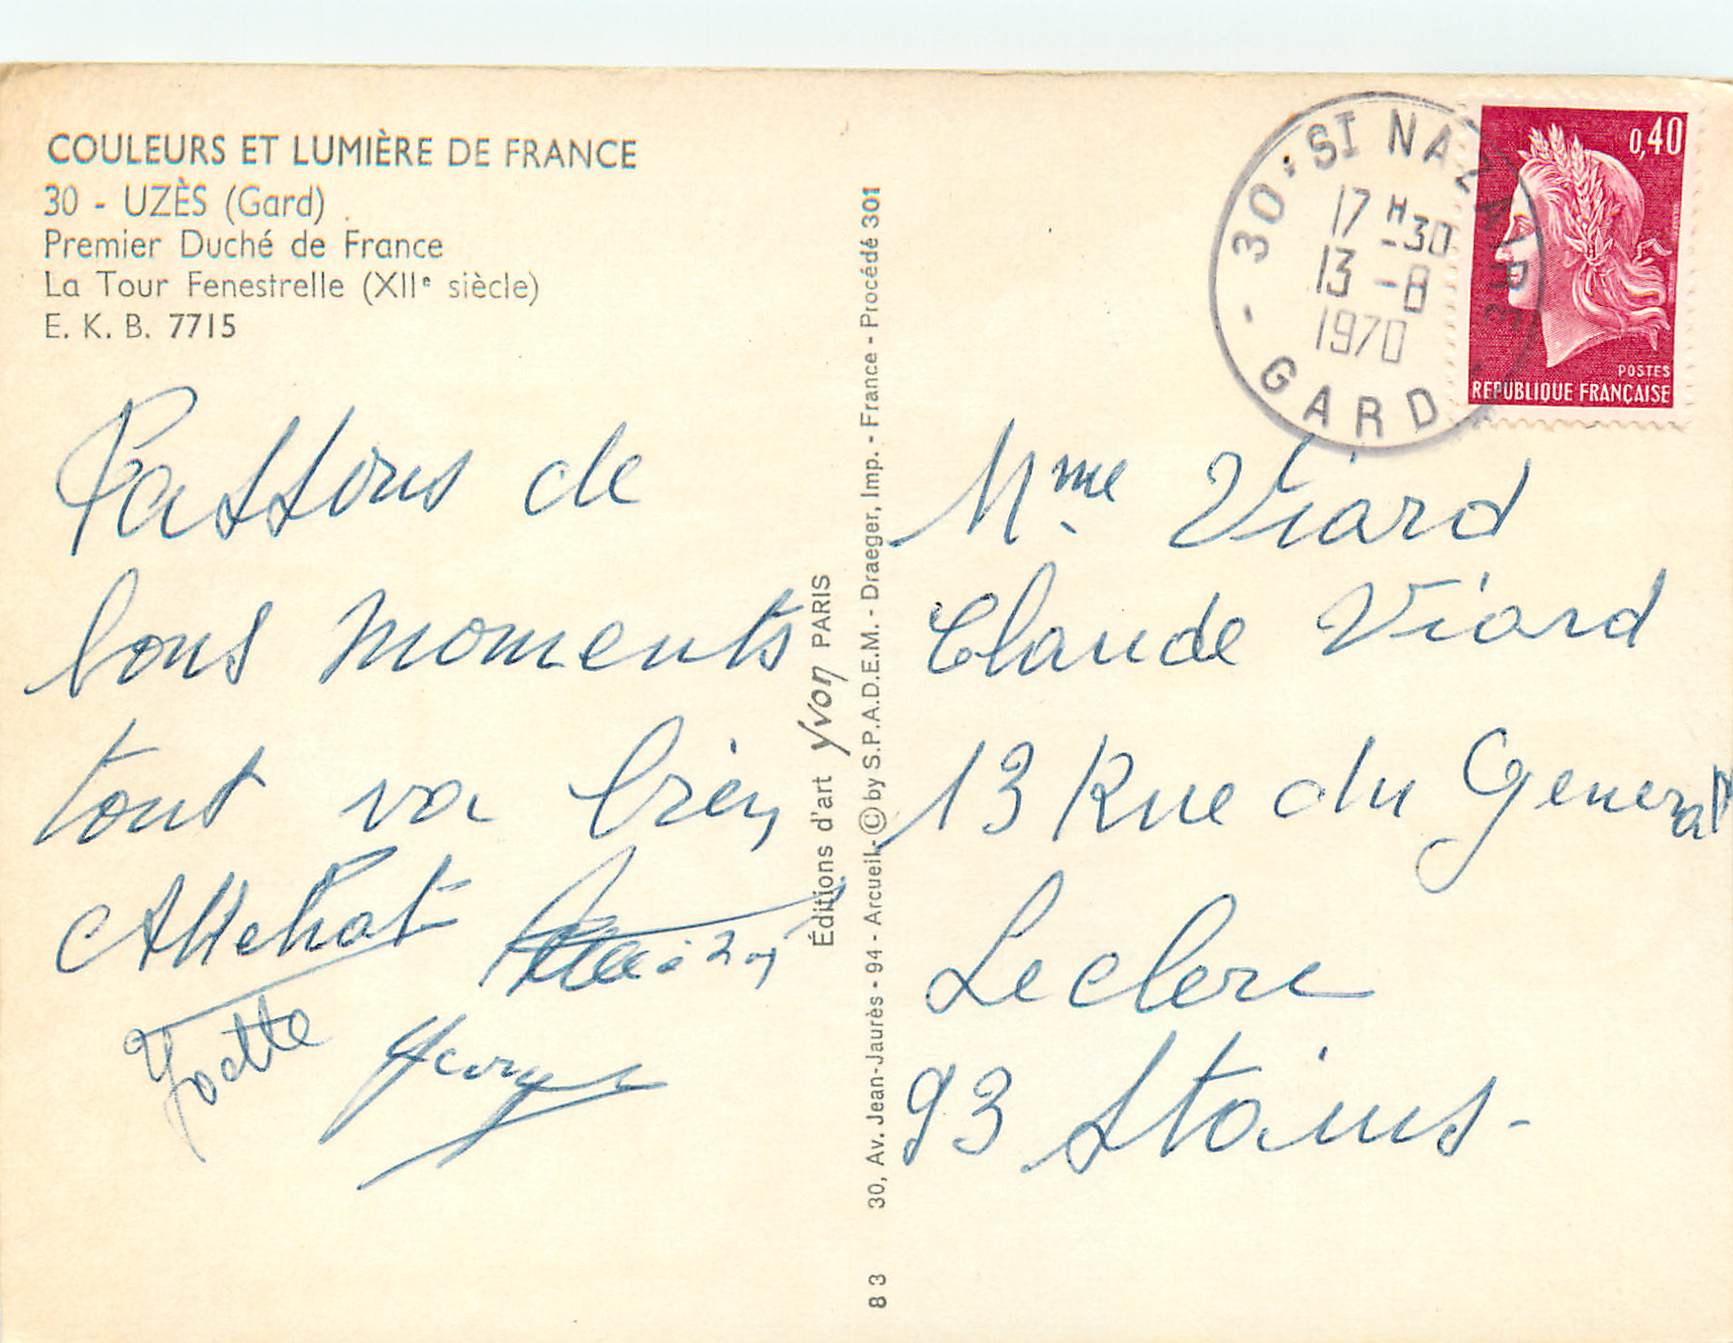 COULEURS ET LUMIÈRE DE FRANCE
30 - UZÈS (Gard)
Premier Duché de France
La Tour Fenestrelle (XIIe siècle)
E. K. B. 7715
Passons de
bons moments
tout va bien
Yvette
Georges
Éditions d'art yvon PARIS
83 30, Av. Jean-Jaurès - 94 - Arcueil - © by S.P.A.D.E.M. - Draeger, Imp. - France - Procédé 301
30 · ST NAZAIRE
17 H-30
13 - 8
1970
- GARD
0,40
POSTES
REPUBLIQUE FRANÇAISE
Mme Viard
Claude Viard
13 Rue du General
Leclerc
93 Stains -